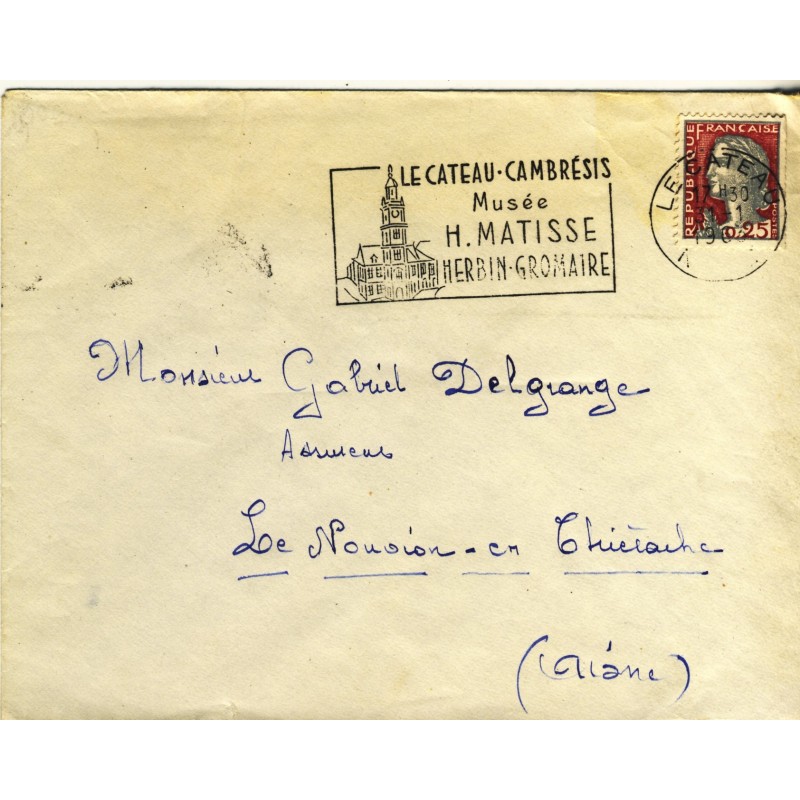 LE CATEAU-CAMBRÉSIS
Musée
H. MATISSE
HERBIN-GROMAIRE
REPUBLIQUE FRANÇAISE
POSTES
0,25
LE CATEAU
17 H30
Monsieur Gabriel Delgrange
Assureur
Le Nouvion-en Thiérache
(Aisne)